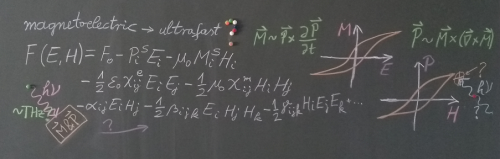 magnetoelectric → ultrafast ?
M⃗ ~ P⃗ × ∂P⃗/∂t
M
E
P⃗ ~ M⃗ × (∇⃗ × M⃗)
F(E,H) = F₀ - PᵢˢEᵢ - μ₀MᵢˢHᵢ
- 1/2 ε₀χᵢⱼᵉEᵢEⱼ - 1/2 μ₀χᵢⱼᵐHᵢHⱼ
- αᵢⱼEᵢHⱼ - 1/2 βᵢⱼₖEᵢHⱼHₖ - 1/2 γᵢⱼₖHᵢEⱼEₖ ...
P
H
hν
? ?
~THz
hν
M⃗&P⃗
?